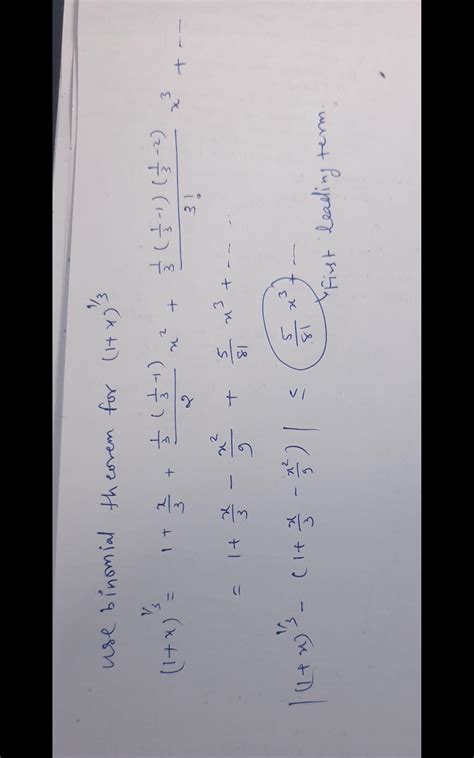 use binomial theorem for (1+x)^1/3
(1+x)^1/3 = 1 + x/3 + 1/3 (1/3 -1)/2 x^2 + 1/3 (1/3 -1) (1/3 -2)/3! x^3 + ---
= 1 + x/3 - x^2/9 + 5/81 x^3 + ---
|(1+x)^1/3 - (1 + x/3 - x^2/9)| ≤ 5/81 x^3 + ---
First leading term.